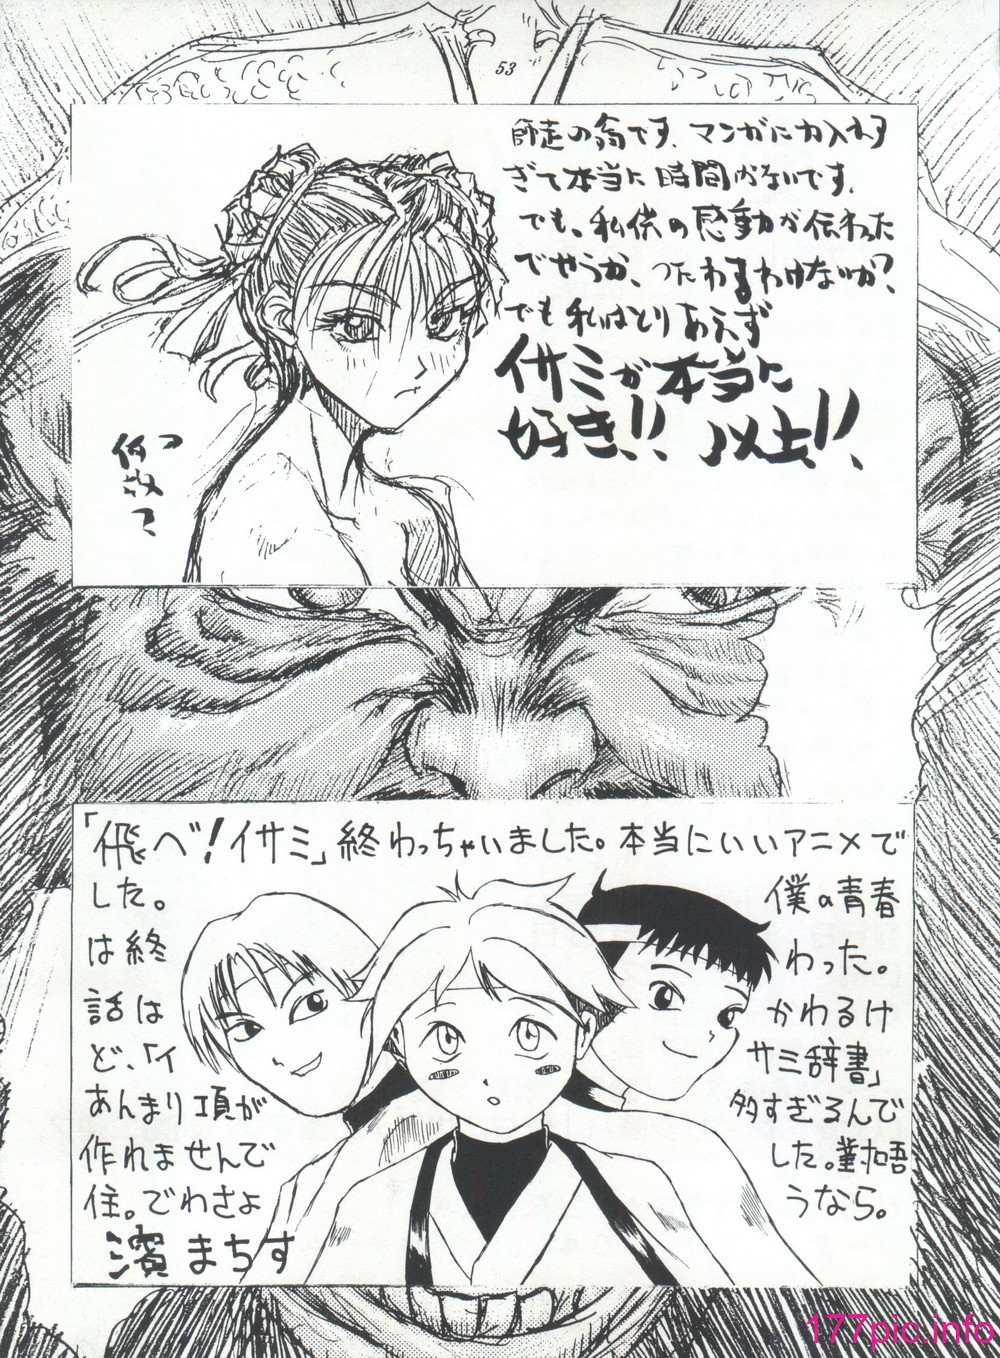 53
師走の翁です。マンガに力入れす
ぎて本当に時間がないです。
でも、私供の感動が伝わった
でやうか、つたわるわけないか?
でも私はとりあえず
イサミが本当に
好き!! 以上!!
「飛べ!イサミ」終わっちゃいました。本当にいいアニメで
した。 僕の青春
は終 わった。
話は かわるけ
ど、「イ サミ辞書」
あんまり項が 多すぎるんで
作れませんで した。
住。でわさよ うなら。
濱まちす
177pic.info